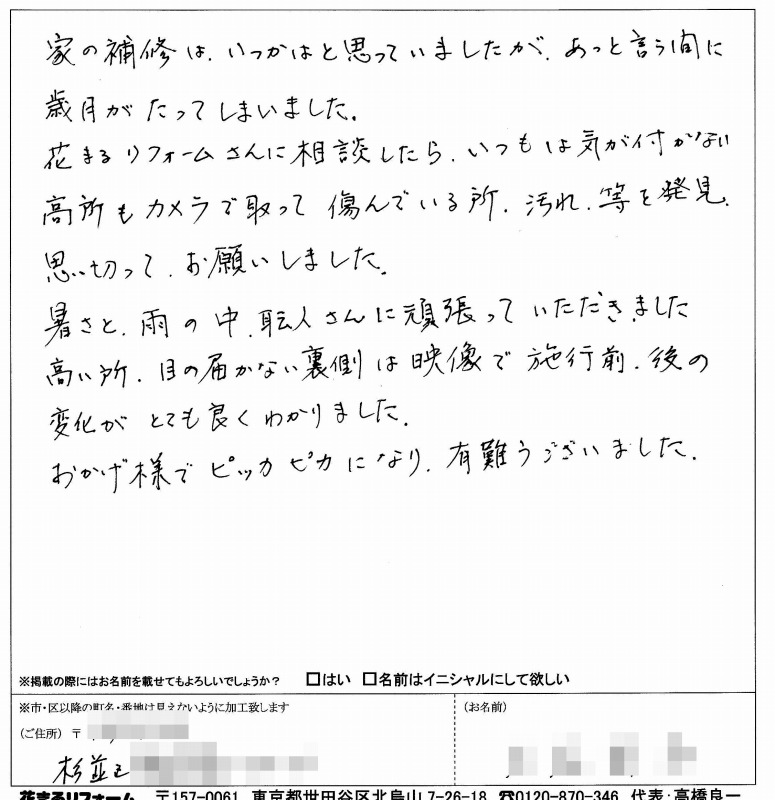 家の補修は、いつかはと思っていましたが、あっと言う間に
歳月がたってしまいました。
花まるリフォームさんに相談したら、いつもは気が付かない
高所もカメラで取って傷んでいる所、汚れ、等を発見、
思い切って、お願いしました。
暑さと、雨の中、職人さんに頑張っていただきました
高い所、目の届かない裏側は映像で施行前、後の
変化がとても良くわかりました。
おかげ様でピッカピカになり、有難うございました。
※掲載の際にはお名前を載せてもよろしいでしょうか? □はい □名前はイニシャルにして欲しい
※市・区以降の町名・番地は見えないように加工致します
(お名前)
(ご住所) 〒
杉並区
花まるリフォーム 〒157-0061 東京都世田谷区北烏山 7-26-18 ☎0120-870-346 代表:高橋良一